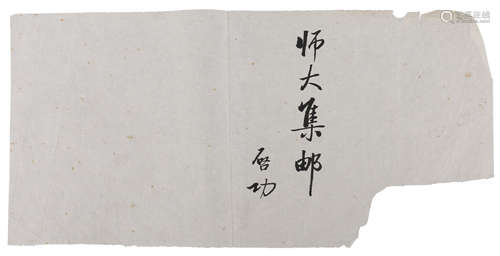 师大集邮
启功